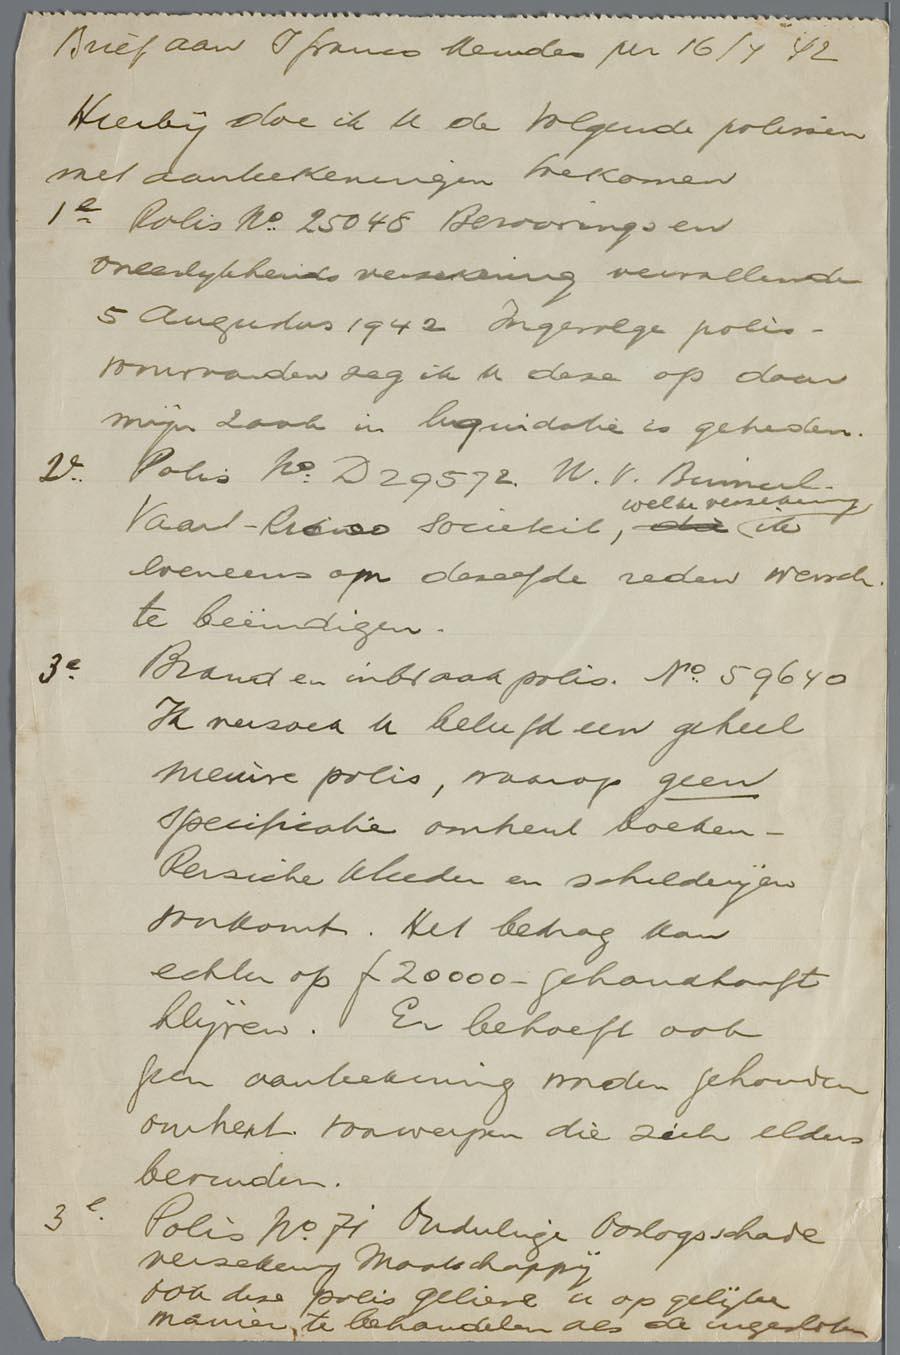 Brief aan J franco Mendes per 16/7 '42
Hierbij doe ik U de volgende polissen
met aantekeningen toekomen
1e Polis No. 25048 Berovings en
oneerlijkheids verzekering vervallende
5 Augustus 1942 Ingevolge polis-
voorwaarden zeg ik U deze op daar
mijn zaak in liquidatie is getreden.
2e. Polis No. D29572. N.V. Binnenl.
welke verzekering
Vaart-Risico Societeit, die ik
eveneens om dezelfde reden wensch
te beëindigen.
3e. Brand en inbraak polis. No. 59640
Ik verzoek U beleefd een geheel
nieuwe polis, waarop geen
specificatie omtrent boeken-
Persiche kleeden en schilderijen
voorkomt. Het bedrag kan
echter op f 20000- gehandhaaft
blijven. Er behoeft ook
geen aantekening worden gehouden
omtrent voorwerpen die zich elders
bevinden.
3e. Polis No. 71 Onderlinge Oorlogsschade
verzekering Maatschappij
ook deze polis gelieve u op gelijke
manier, te behandelen als de ingesloten